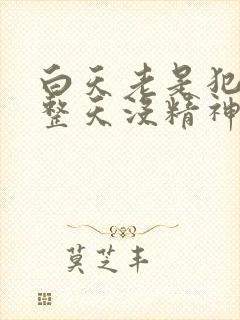 白天老是犯
整天没精神
莫芝丰